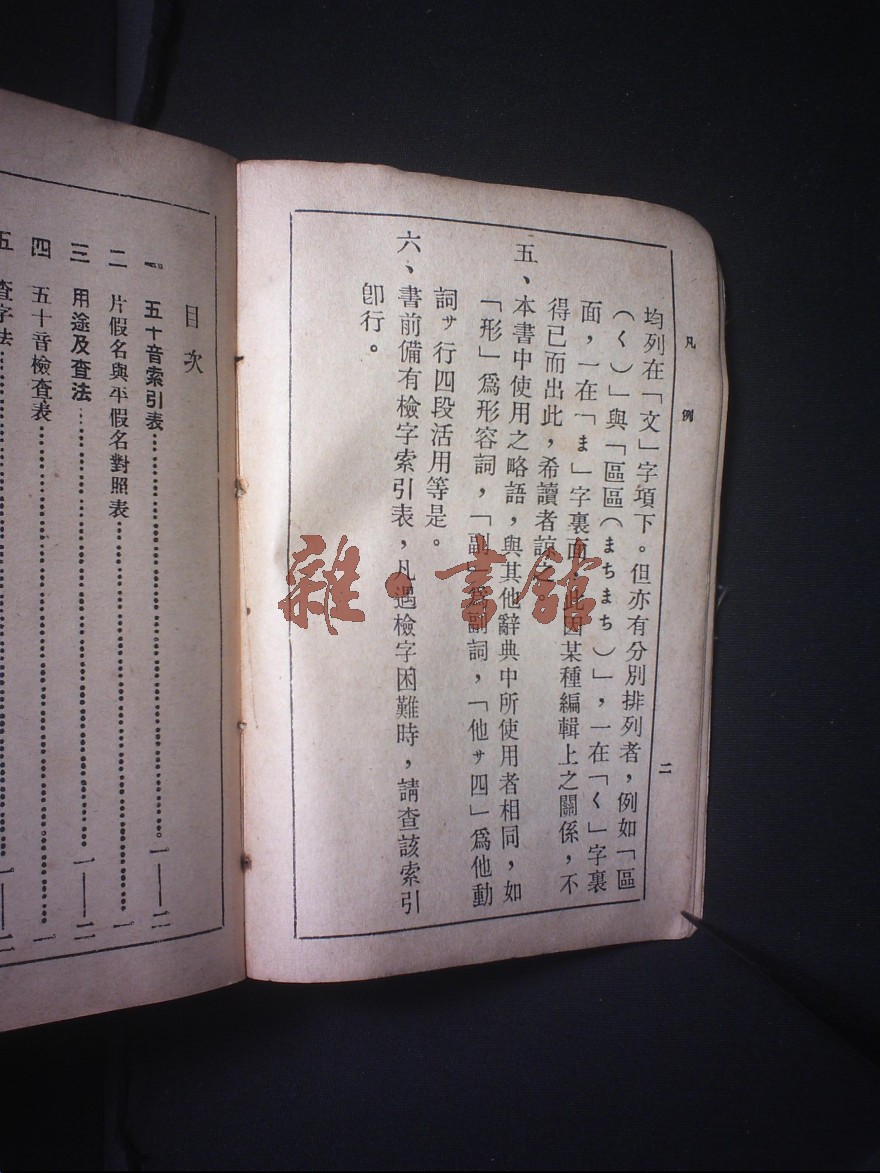 凡例
二
均列在「文」字項下。但亦有分別排列者，例如「區
（く）」與「區區（まちまち）」，一在「く」字裏
面，一在「ま」字裏面，此因某種編輯上之關係，不
得已而出此，希讀者諒之。
五、本書中使用之略語，與其他辭典中所使用者相同，如
「形」爲形容詞，「副」爲副詞，「他サ四」爲他動
詞サ行四段活用等是。
六、書前備有檢字索引表，凡遇檢字困難時，請查該索引
卽行。
目次
一 五十音索引表…………一—二
二 片假名與平假名對照表…………一
三 用途及查法…………一—二
四 五十音檢查表…………一
五 查字法…………一—二
雜·書館